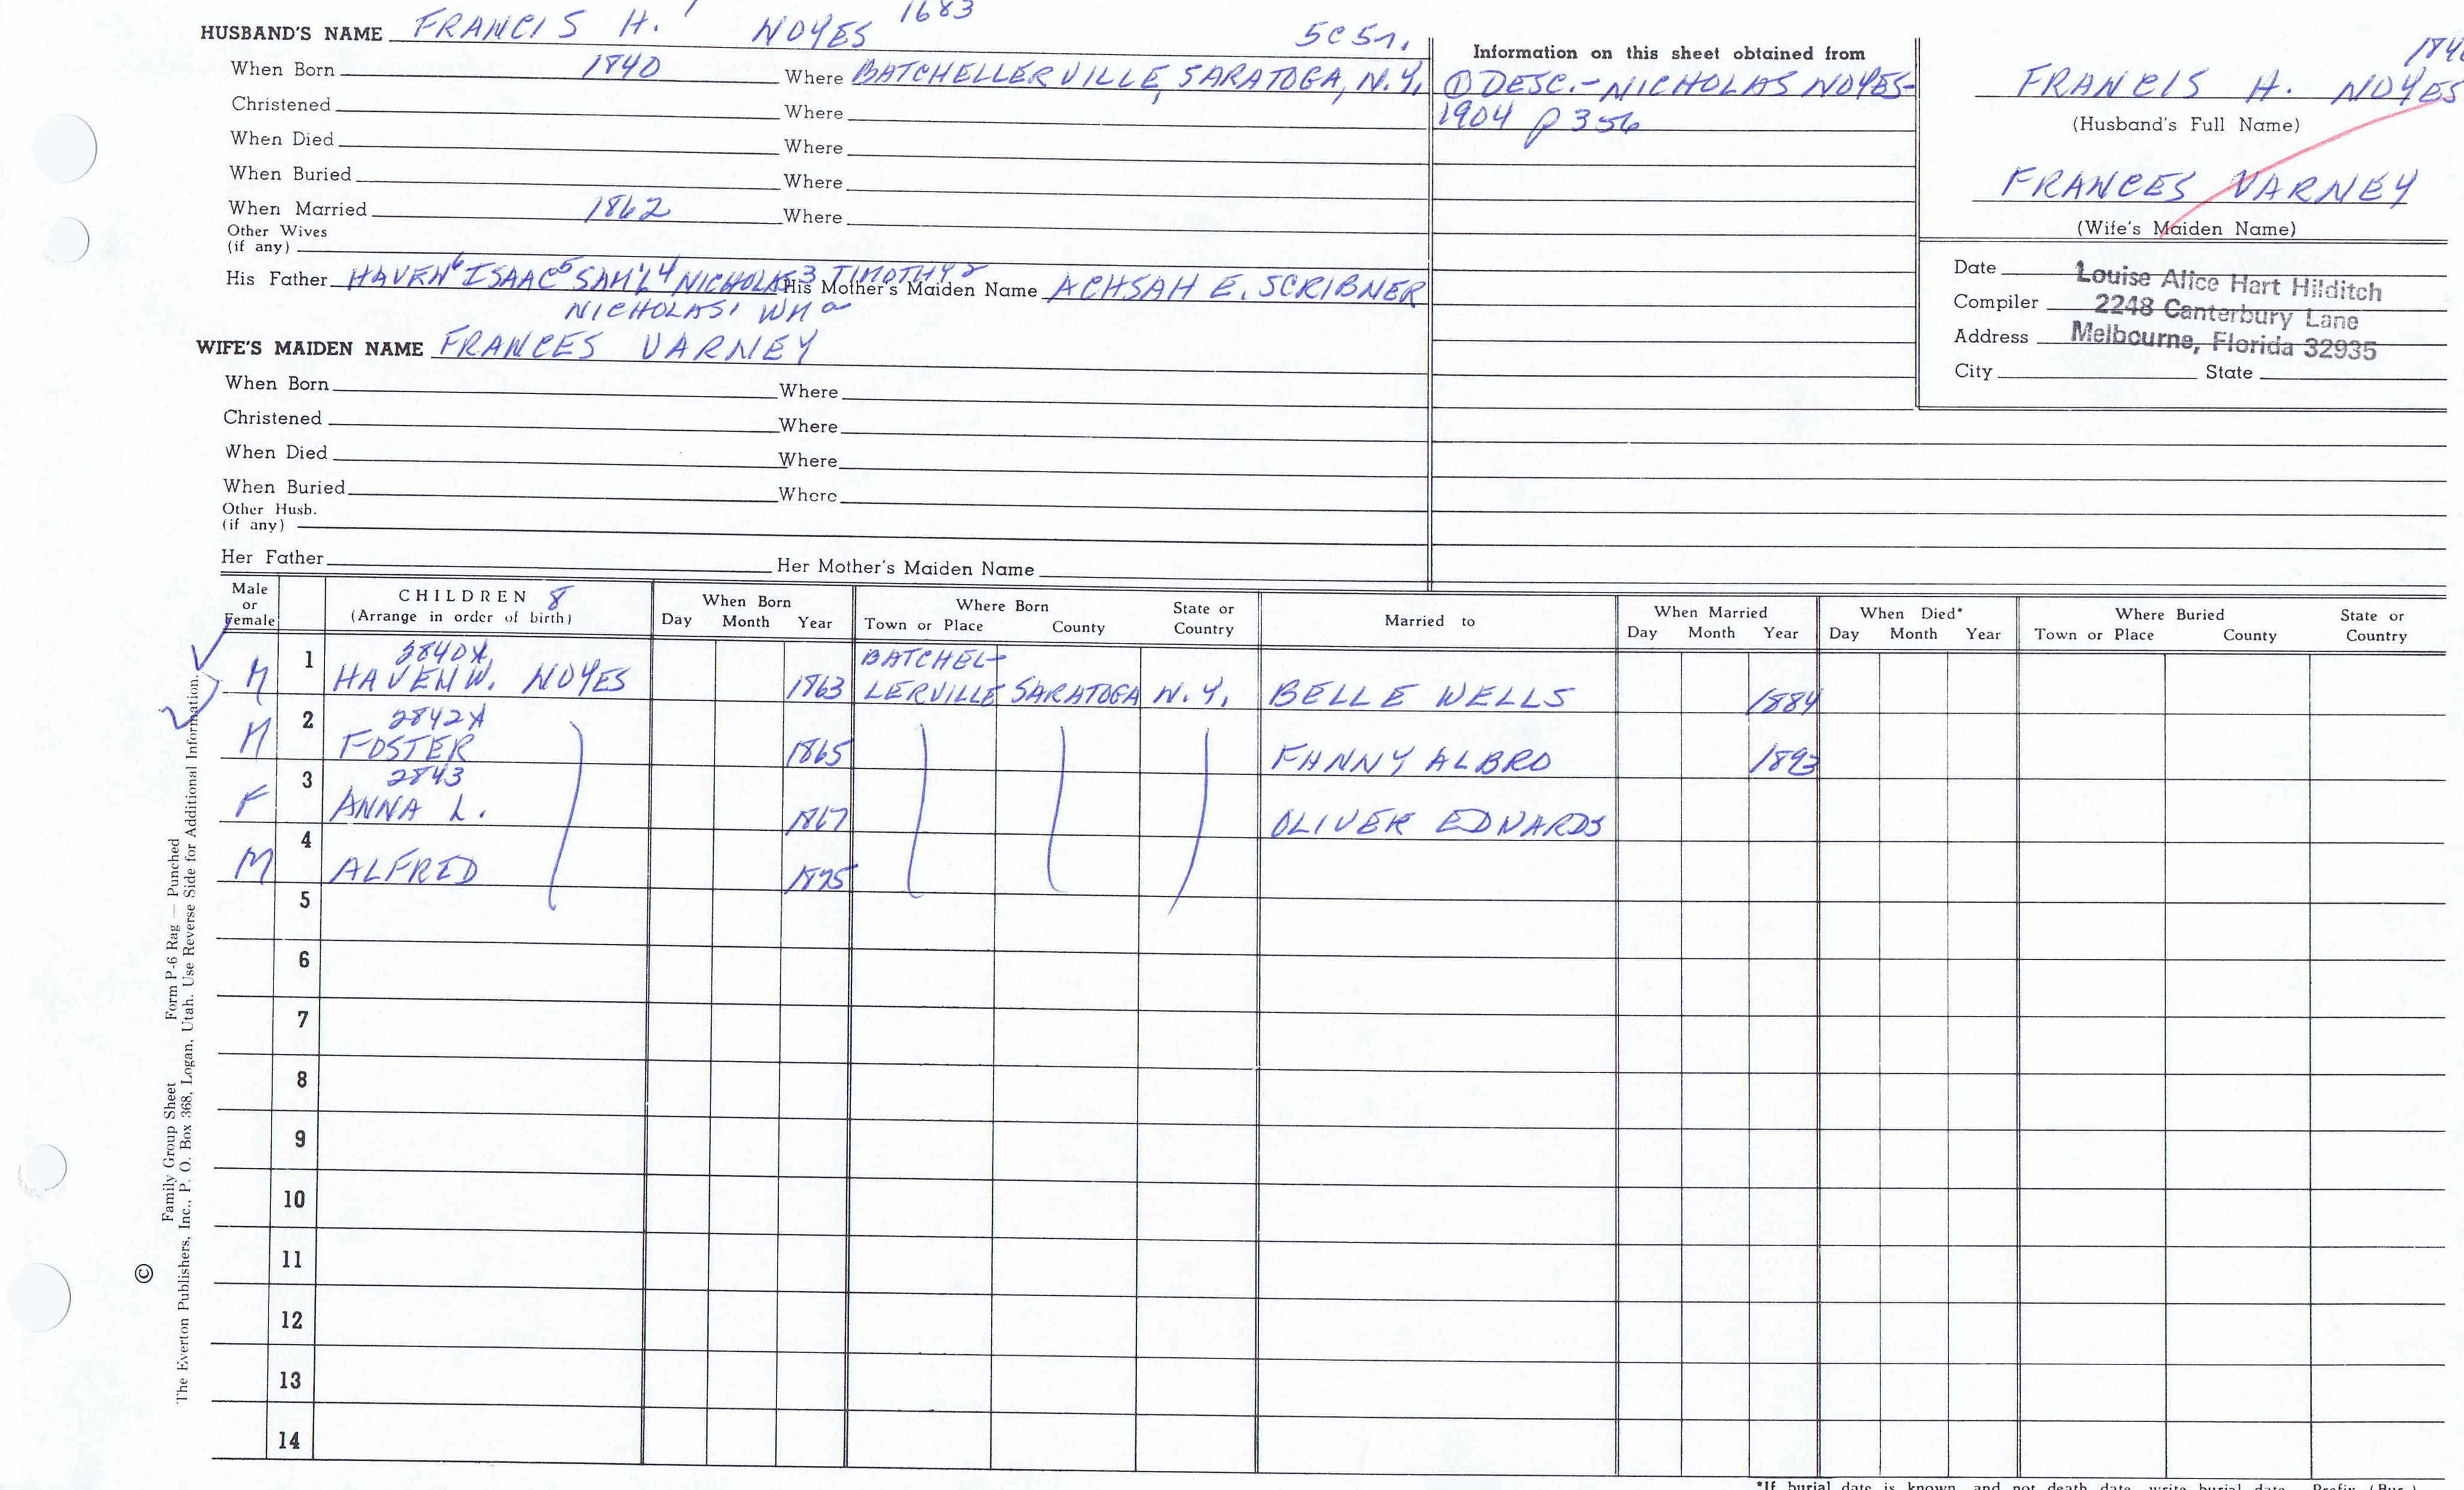 HUSBAND'S NAME FRANCIS H. NOYES 1683 5C5n.
When Born 1840 Where BATCHELLERVILLE, SARATOGA, N.Y.
Christened Where
When Died Where
When Buried Where
When Married 1862 Where
Other Wives
(if any)
His Father HAVEN6 ISAAC5 SAM'L4 NICHOLAS3 TIMOTHY2 His Mother's Maiden Name ACHSAH E. SCRIBNER
NICHOLAS1 WMa
WIFE'S MAIDEN NAME FRANCES VARNEY
When Born Where
Christened Where
When Died Where
When Buried Where
Other Husb.
(if any)
Her Father Her Mother's Maiden Name
Information on this sheet obtained from
① DESC.-NICHOLAS NOYES-
1904 p356
FRANCIS H. NOYES
(Husband's Full Name)
FRANCES VARNEY
(Wife's Maiden Name)
Date Louise Alice Hart Hilditch
Compiler 2248 Canterbury Lane
Address Melbourne, Florida 32935
City State
Male or Female CHILDREN 8 (Arrange in order of birth) When Born Day Month Year Where Born Town or Place County State or Country Married to When Married Day Month Year When Died* Day Month Year Where Buried Town or Place County State or Country
M 1 2840X HAVEN W. NOYES 1863 BATCHEL-LERVILLE SARATOGA N.Y. BELLE WELLS 1884
M 2 2842X FOSTER 1865 FANNY ALBRO 1893
F 3 2843 ANNA L. 1867 OLIVER EDWARDS
M 4 ALFRED 1875
5
6
7
8
9
10
11
12
13
14
Family Group Sheet Form P-6 Rag — Punched
© The Everton Publishers, Inc., P. O. Box 368, Logan, Utah. Use Reverse Side for Additional Information.
*If burial date is known, and not death date, write burial date. Prefix (Bur.)